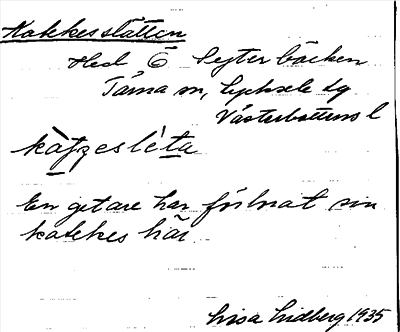 Kakkesslätten
Hed Ö Sejterbäcken
Tärna sn, Lycksele lg
Västerbottens l
En getare har förlorat sin
kakkes här
Lisa Lidberg 1935